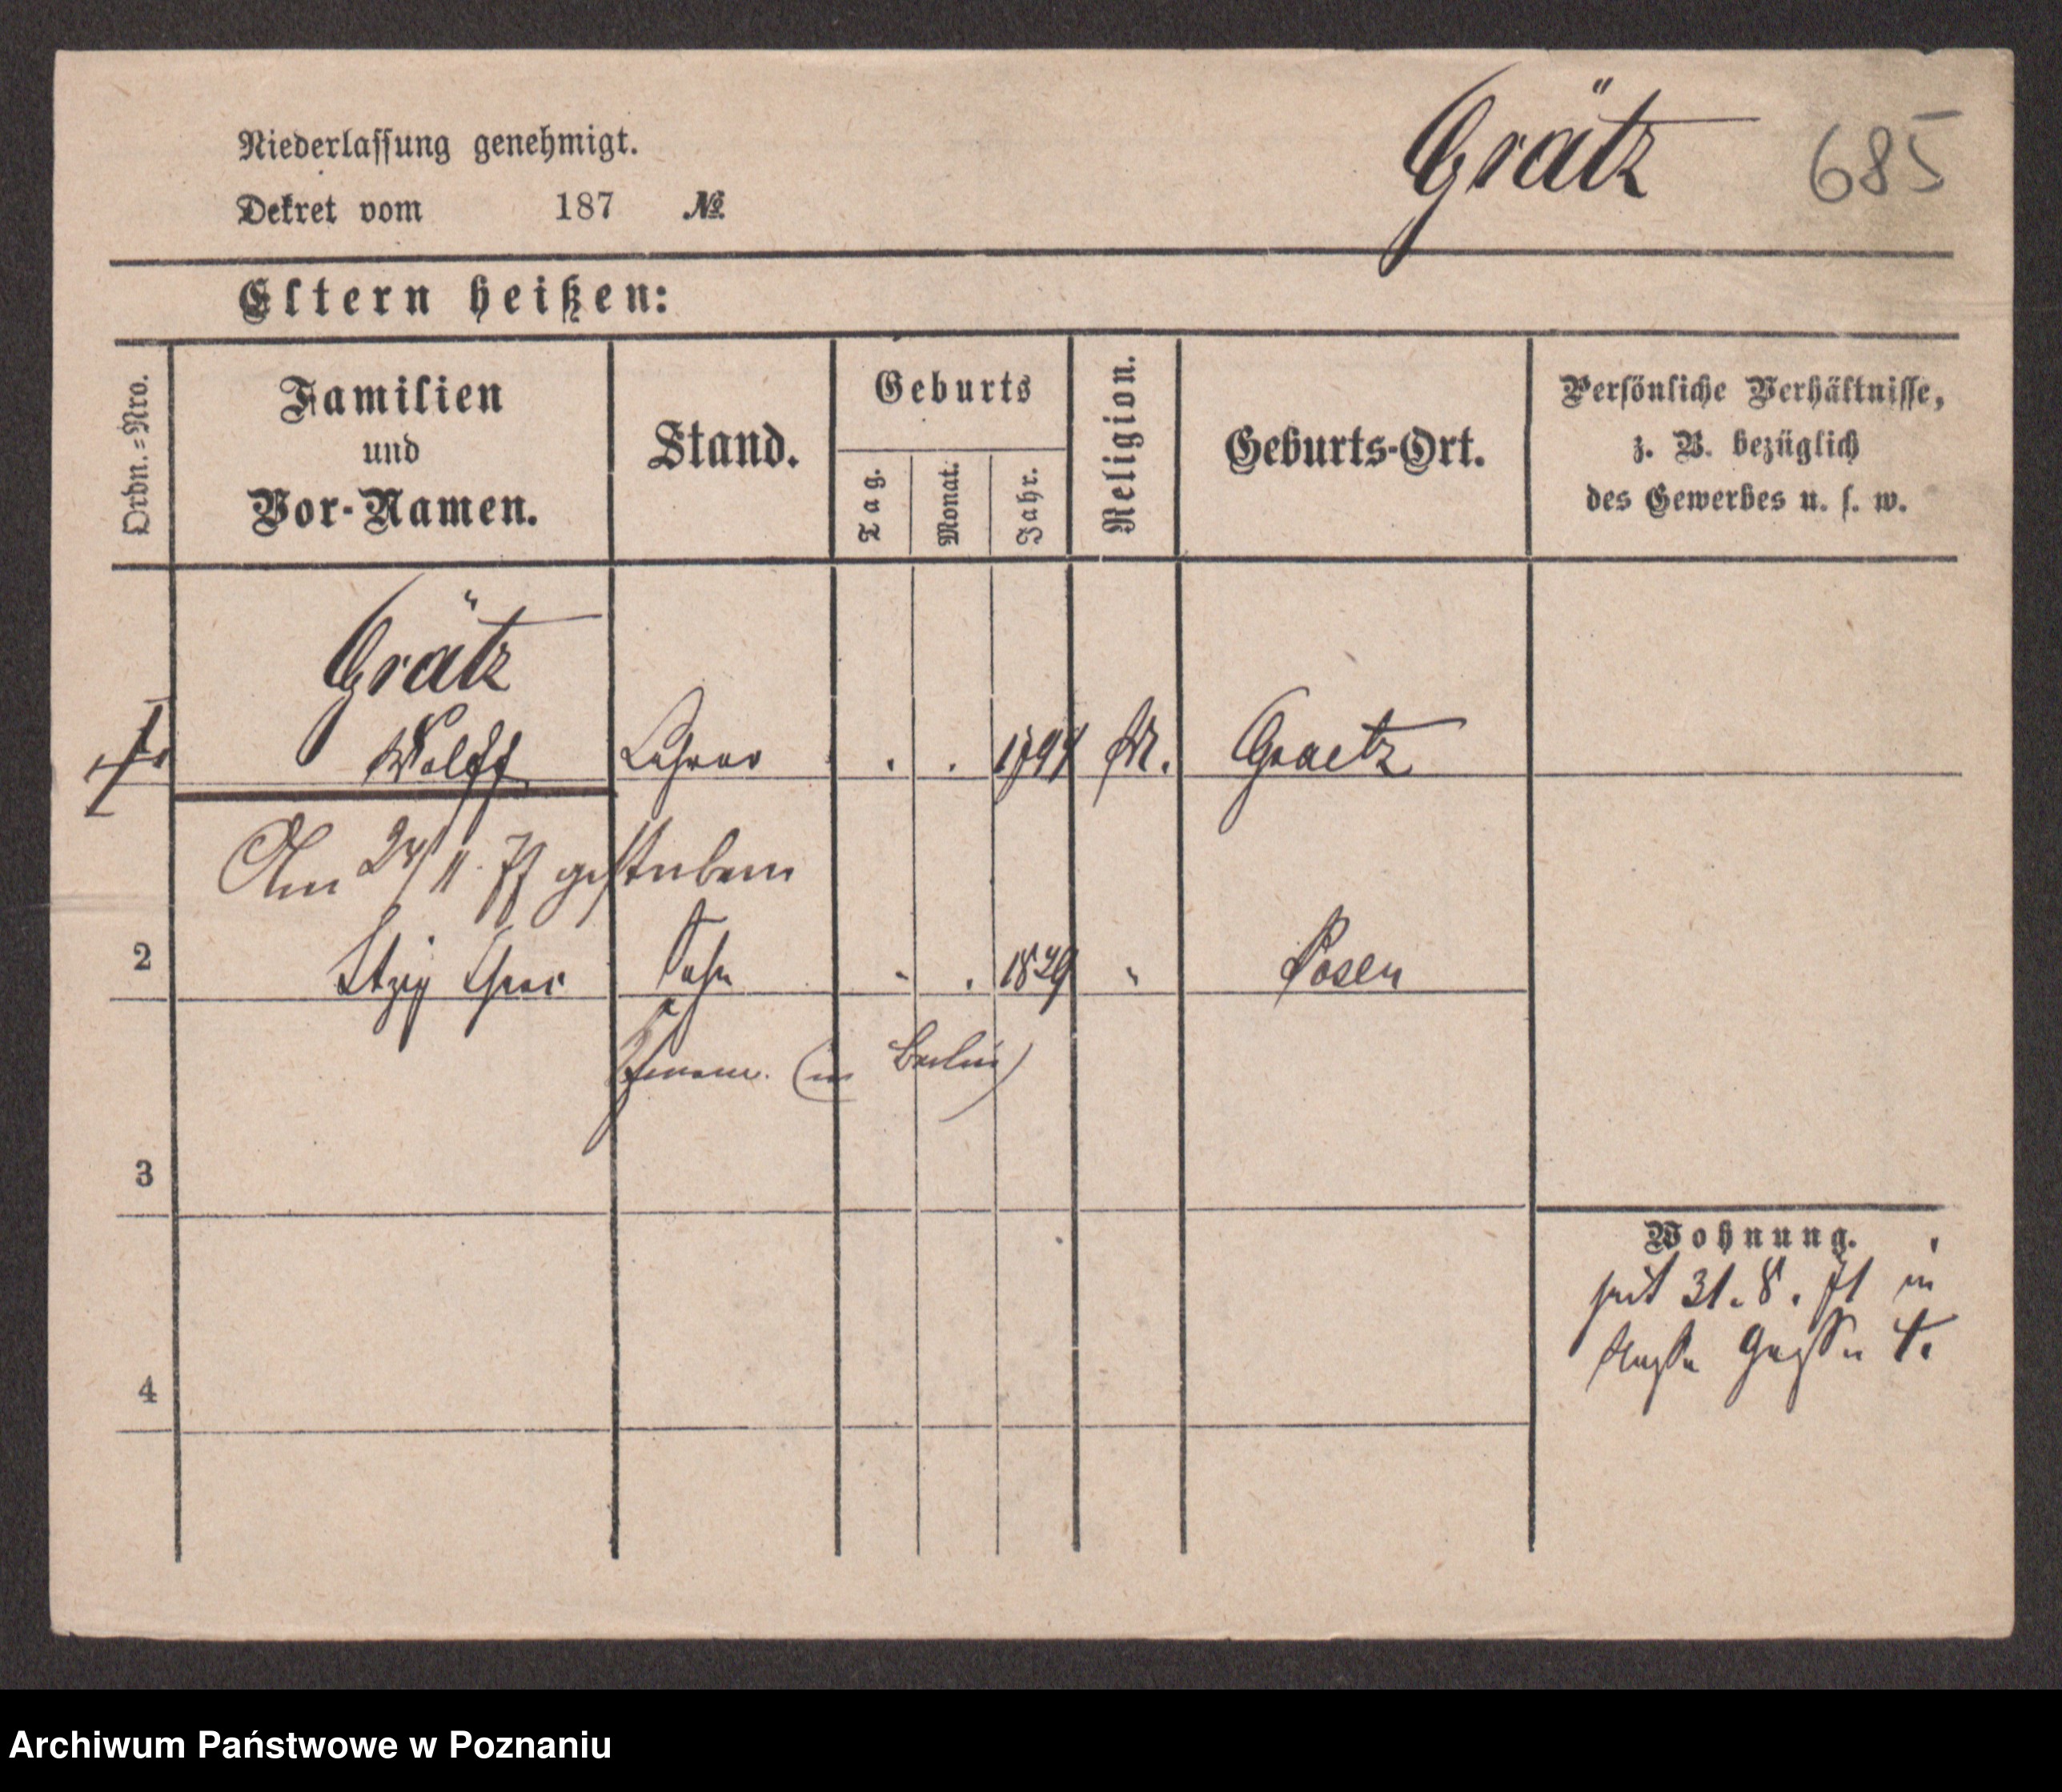 Grätz 685
Niederlassung genehmigt.
Dekret vom 187 №
Eltern heißen:
Ordn.=Nro.
Familien
und
Vor-Namen.
Stand.
Geburts
Tag.
Monat.
Jahr.
Religion.
Geburts-Ort.
Persönliche Verhältnisse,
z. B. bezüglich
des Gewerbes u. s. w.
Grätz
Wolff Lehrer 1794 M. Graetz
Am 24/11. 77 gestorben
2 Itzig Sohn 1829 " Posen
(in Berlin)
3
Wohnung.
seit 31. 8. 71 in
4
Archiwum Państwowe w Poznaniu